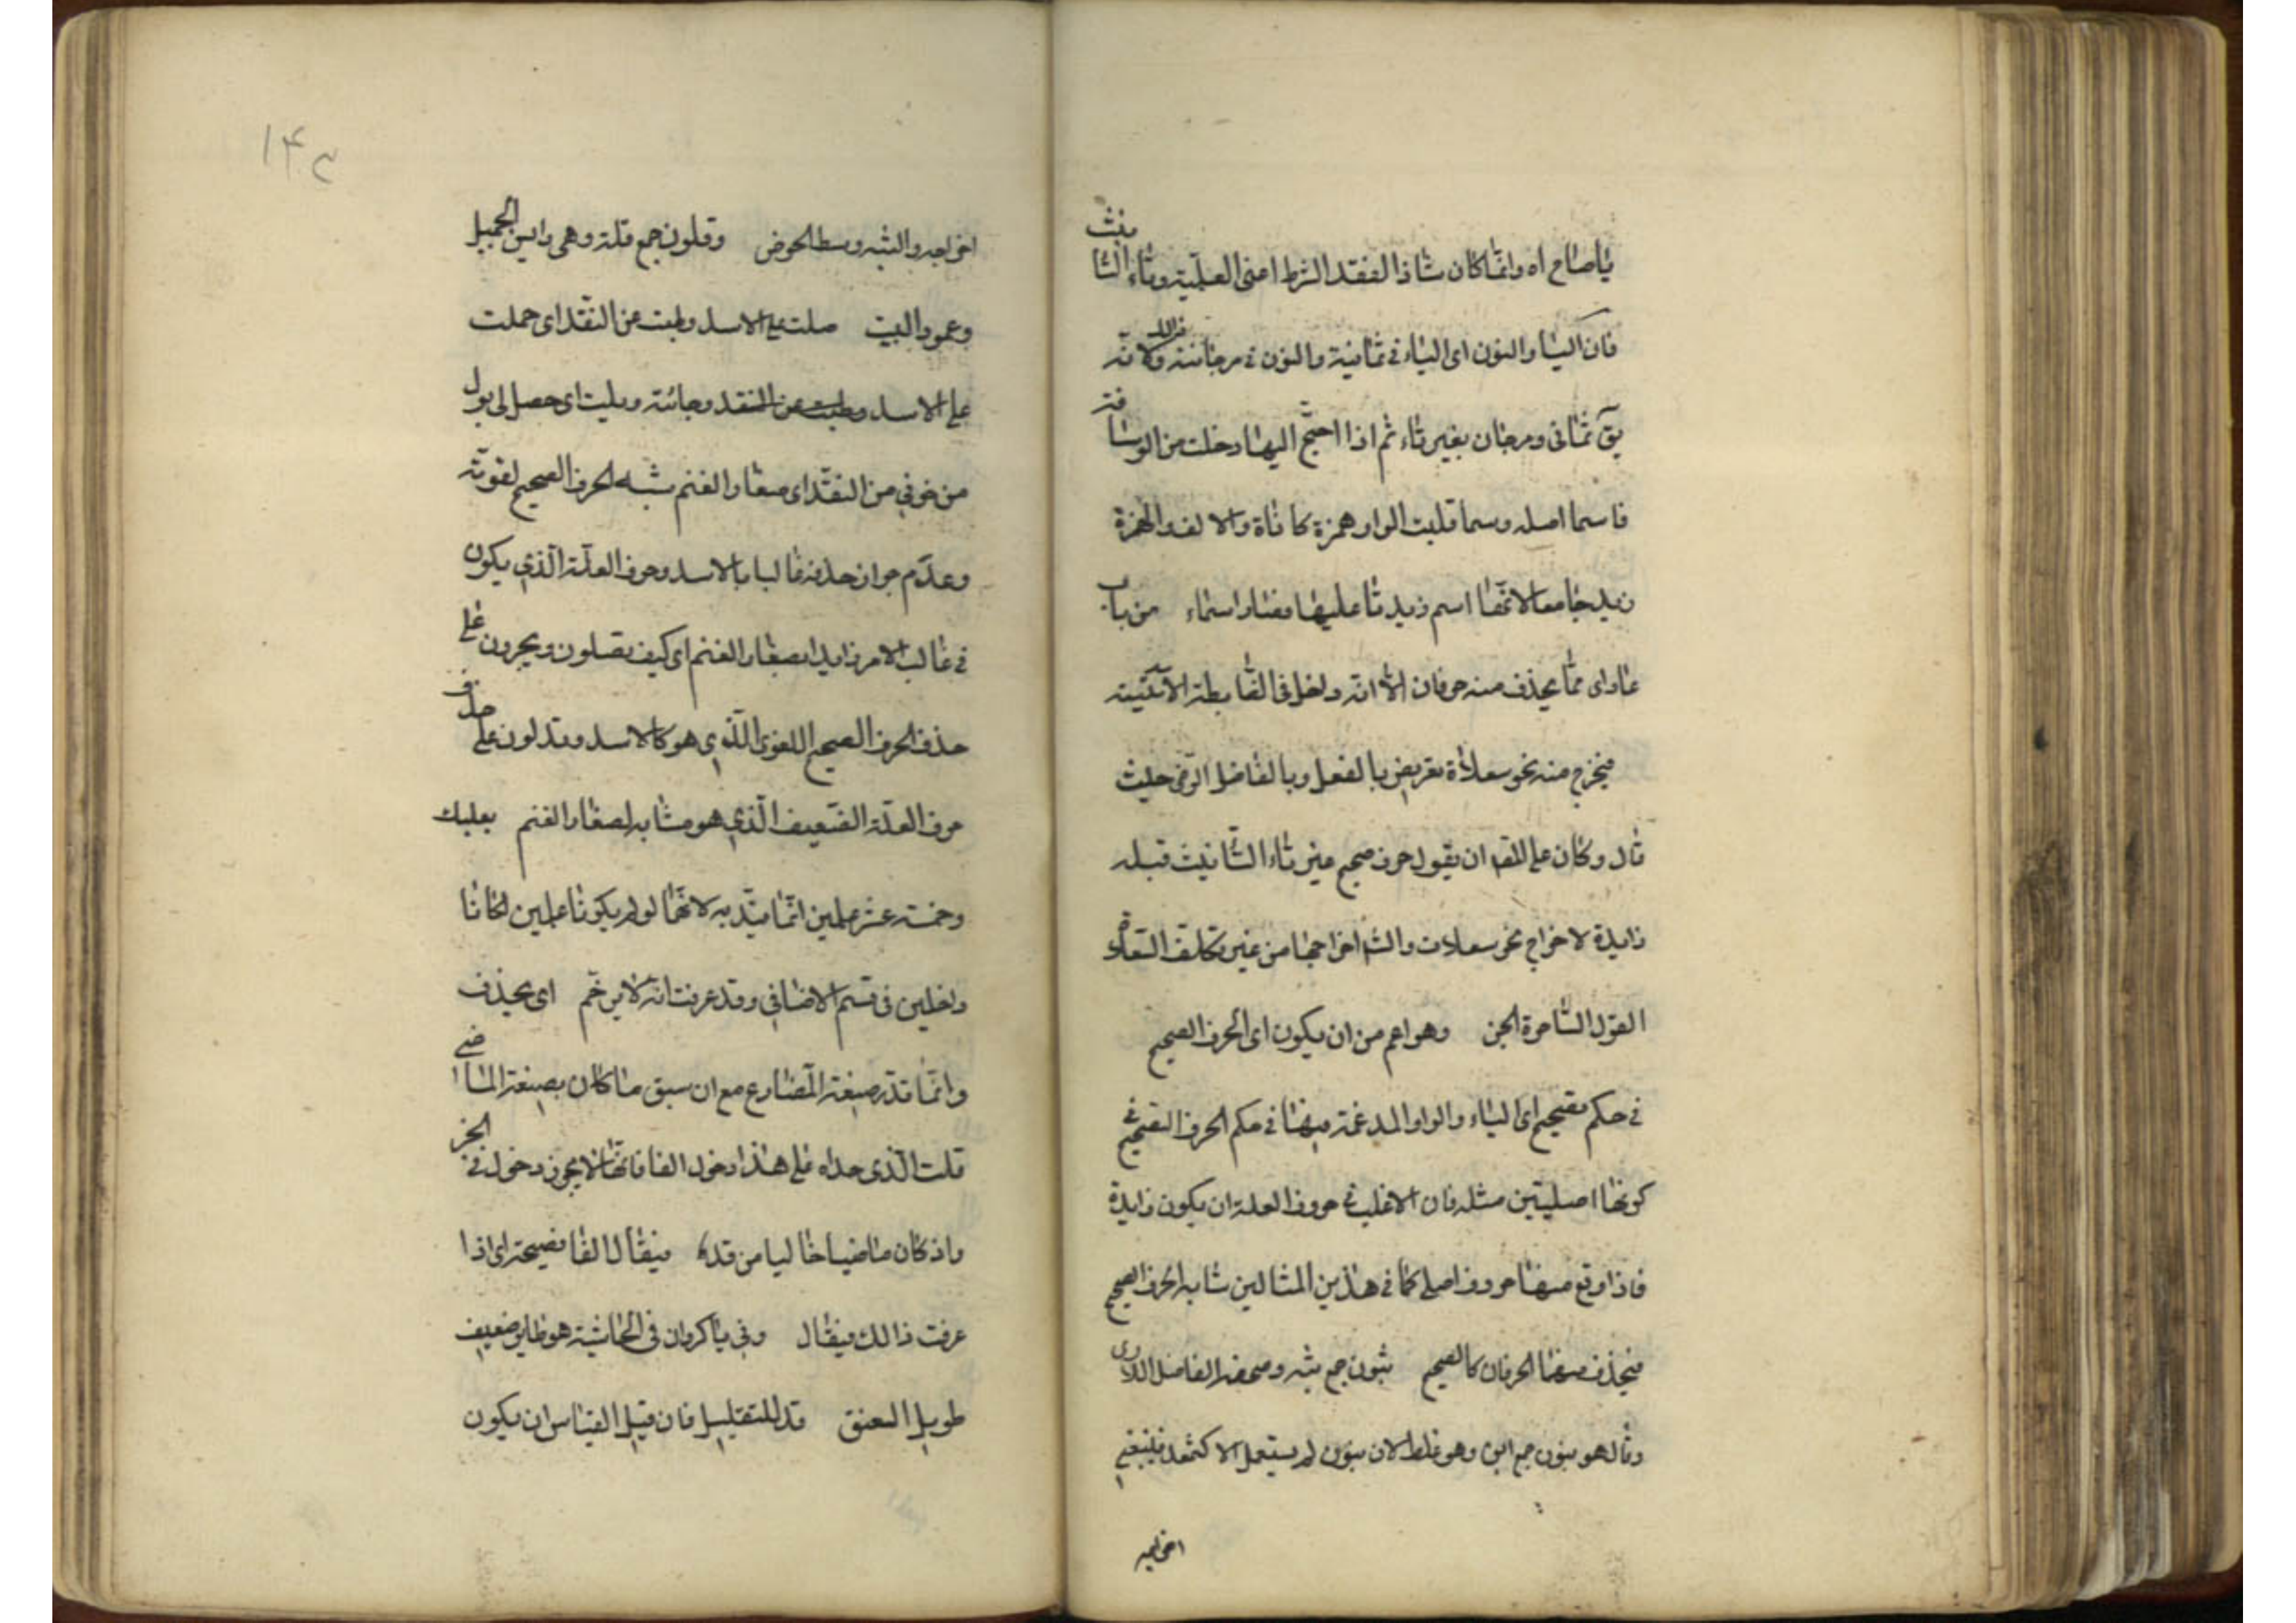 يا صاح اه وانما كان شاذا لفقد الشرط اعنى العلمية وتاء التانيث
فان الياء والنون اى الياء فى ثمانية والنون فى مرجانة كذلك لانه
يق ثمانى ومرجان بغير تاء ثم اذا احتيج اليها دخلت من الوسافة
فاسما اصله وسما قلبت الواو همزة كاناة والالف والهمزة
زيد جامعا لانها اسم زيدتا عليها فصار اسماء من باب
عمار اى مما يحذف منه حرفان الا انه داخل فى الضابطة الاتية
فيخرج منه نحو سعلاة تعريض بالفعل وبالفاضل الرضى حيث
قال وكان على المص ان يقول حرف صحيح غير تاء التانيث قبله
زايدة لاخراج نحو سعلات والش اخراجها من غير تكلف السعلاة
الغول الساحرة الجن وهو اعم من ان يكون اى الحرف الصحيح
فى حكم صحيح اى الياء والواو المدغمة فيهما فى حكم الحرف الصحيح فى
كونهما اصليتين مثله فان الاغلب فى حروف العلة ان يكون زايدة
فاذا وقع منهما حروف اصلى كما فى هذين المثالين شابه الحرف الصحيح
فيحذف منهما الحرفان كالصحيح ثبون جمع ثبه وصحفه الفاضل اللارى
وقال هو بنون جمع ابن وهو غلط لان بنون لم يستعمل الا كثمود فينبغى
اخراجه
١۴٢
اخراجه والثبه وسط الحوض وقلون جمع قلة وهى راس الجميل
وعمود البيت صلت على الاسد وبلت عن النقد اى حملت
على الاسد وجائته وبليت اى حصل لى بول
من خوفى من النقد اى صغار الغنم شبه الحرف الصحيح لقوته
وعدم جواز حذفه غالبا بالاسد وحرف العلة الذى يكون
فى غالب الامر زايدا بصغار الغنم اى كيف تصلون ويجرون على
حذف الحرف الصحيح اللغوى الذى هو كالاسد وتدلون على حذف
حرف العلة الضعيف الذى هو مشابه لصغار الغنم بعلبك
وخمسة عشر علمين انما قيد به لانهما لو لم يكونا علمين لكانا
داخلين فى قسم الاضافى وقد عرفت انه لا يرخم اى يحذف
وانما قدر صيغة المضارع مع ان سبق ما كان بصيغة الماضى
قلت الذى حداه على هذا دخول الفا فانها لا يجوز دخول فى الجز
واذ كان ماضيا خاليا من قد فيقال الفا فصيحة اى اذا
عرفت ذالك فيقال وفى يا كروان فى الحاشية هو طاير ضعيف
طويل العنق قد للتقليل فان قيل القياس ان يكون